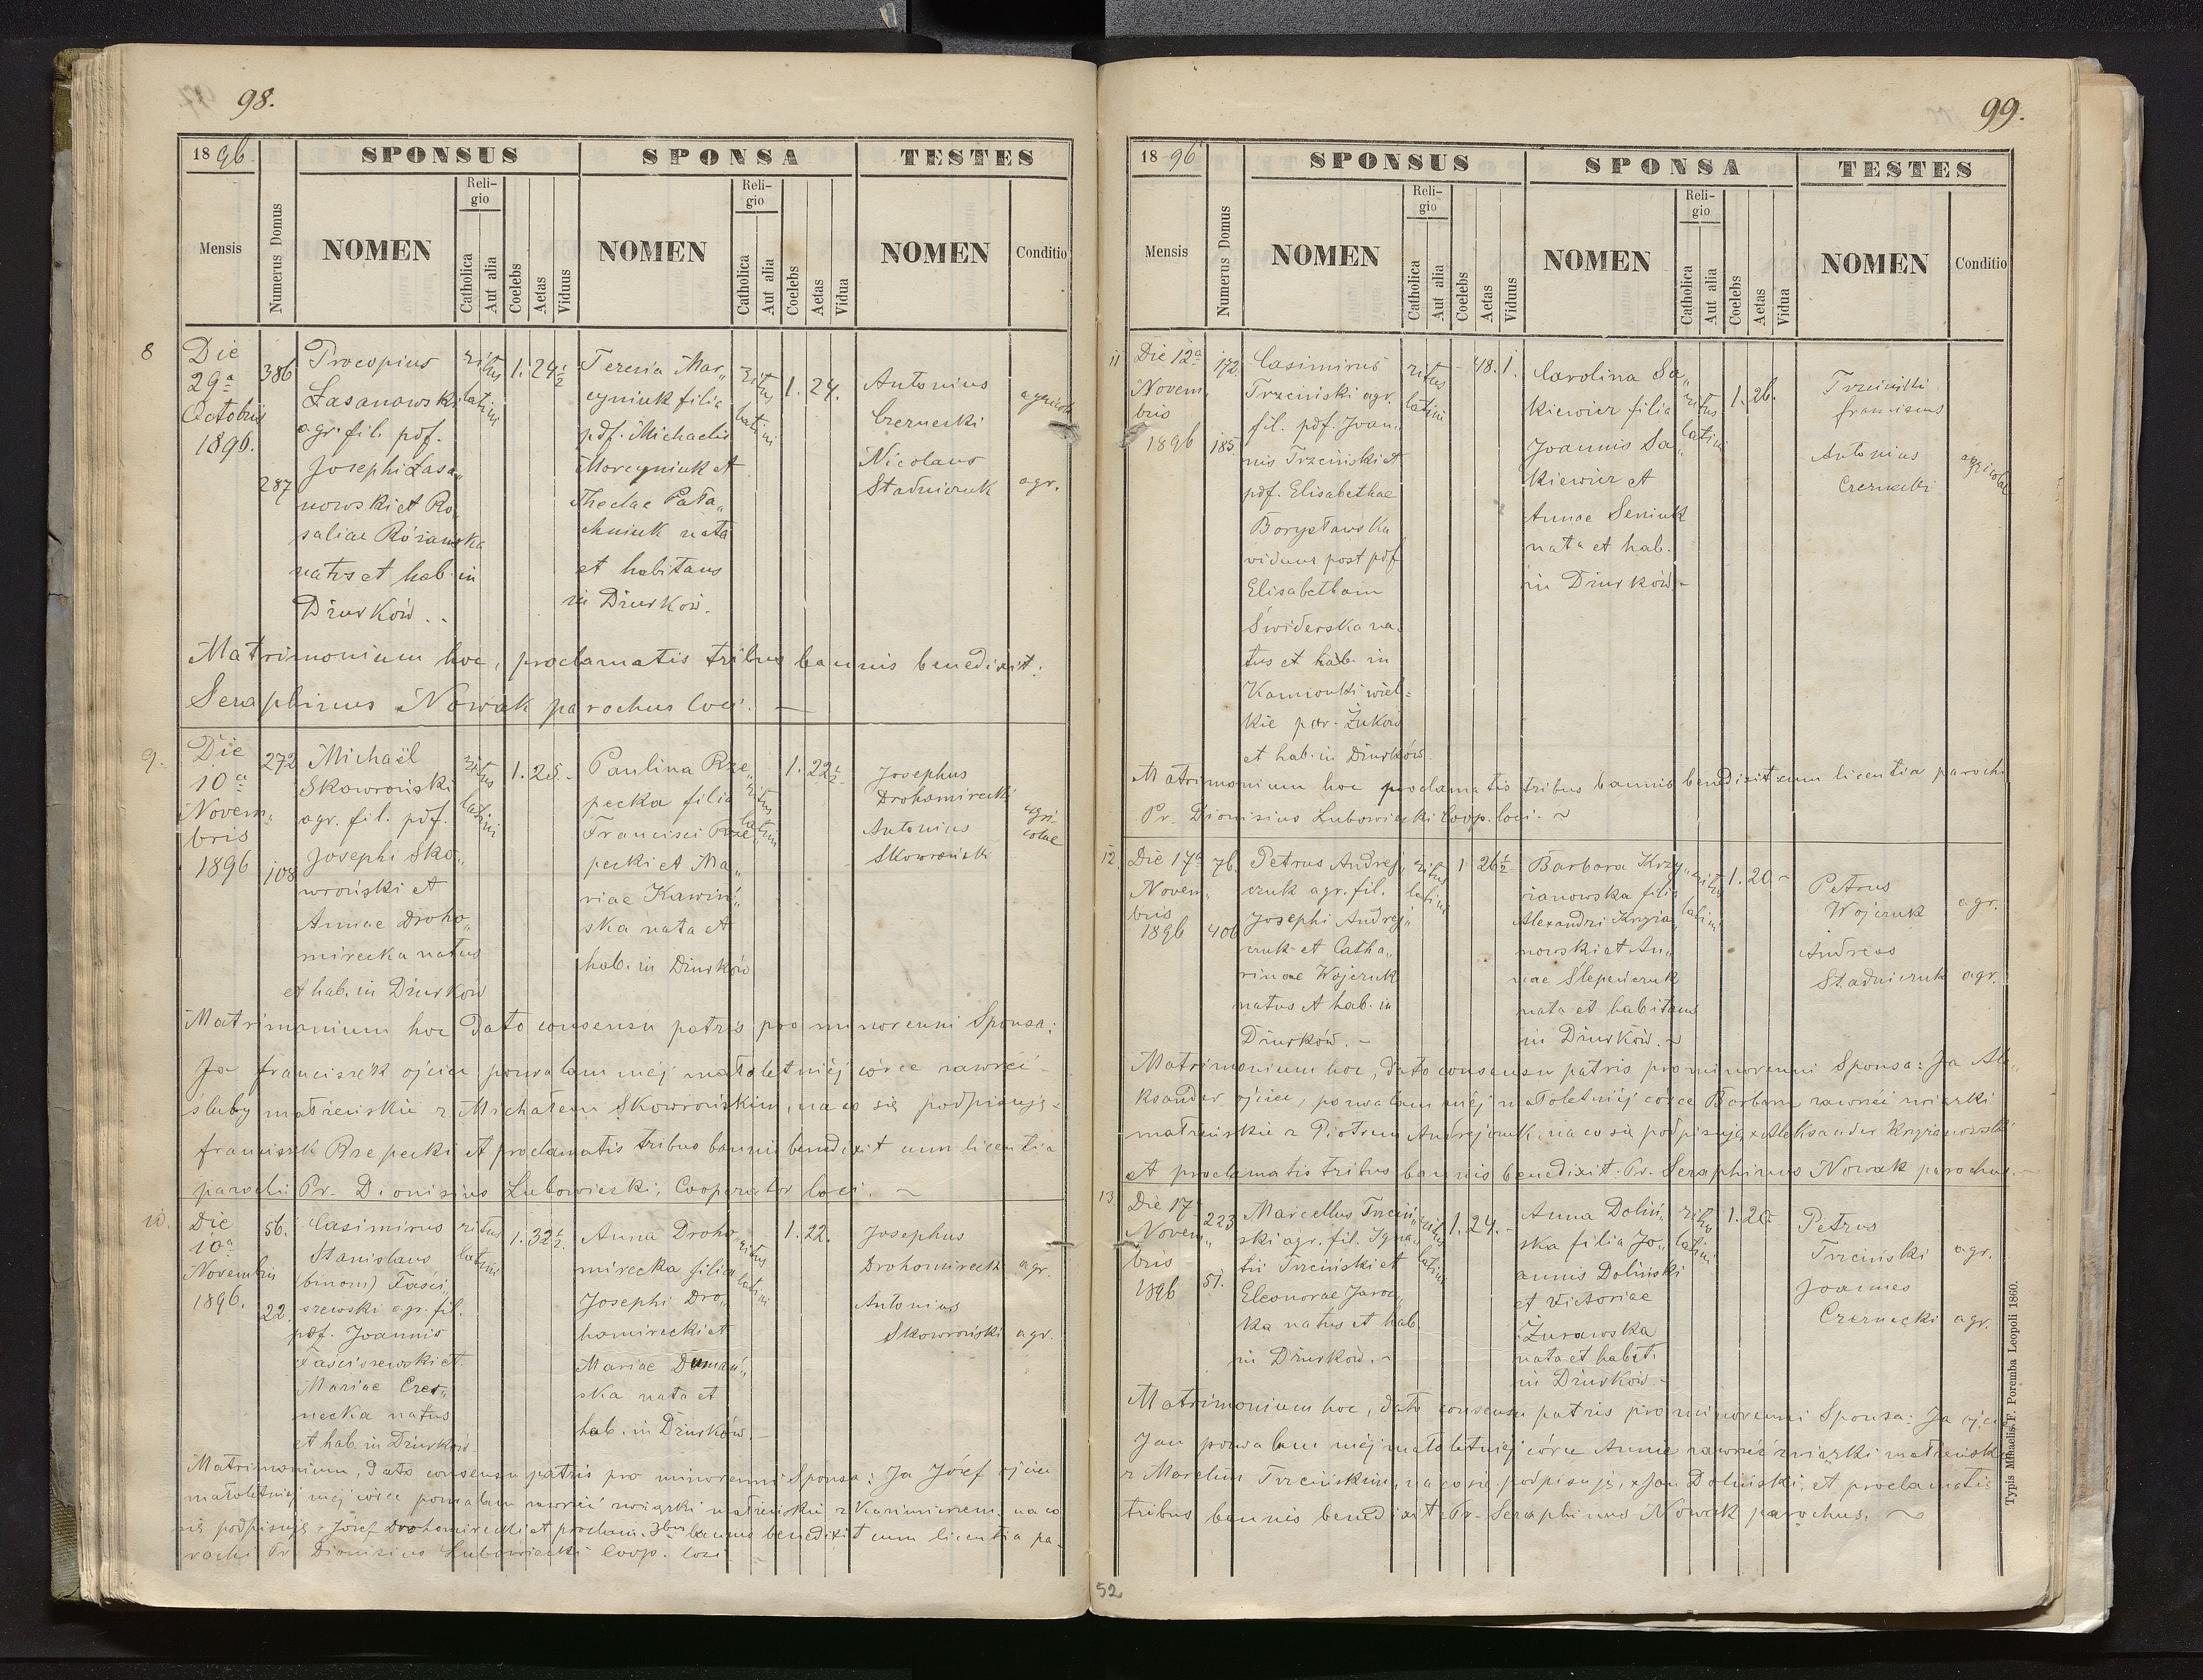 98.
1896.
SPONSUS
SPONSA
TESTES
Mensis
Numerus Domus
NOMEN
Religio
Catholica
Aut alia
Coelebs
Aetas
Viduus
NOMEN
Religio
Catholica
Aut alia
Coelebs
Aetas
Vidua
NOMEN
Conditio
8
Die
29a
Octobris
1896.
386
287
Procopius
Łasanowski
agr. fil. pdf.
Josephi Łasa„
nowski et Ro„
saliae Różańska
natus et hab. in
Dżurków..
ritus
latini
1. 24½
Teresia Mar„
cyniuk filia
pdf. Michaelis
Marcyniuk et
Theclae Pała„
chniuk nata
et habitans
in Dżurków.
ritus
latini
1. 24.
Antonius
Czernecki
Nicolaus
Stadniczuk
agricola
agr.
Matrimonium hoc, proclamatis tribus bannis benedixit:
Seraphinus Nowak parochus loci. —
9.
Die
10a
Novem„
bris
1896
272
108
Michaël
Skowroński
agr. fil. pdf.
Josephi Sko„
wroński et
Annae Droho„
mirecka natus
et hab. in Dżurków
ritus
latini
1. 25.-
Paulina Rze„
pecka filia
Francisci Rze„
pecki et Ma„
riae Kawiń„
ska nata et
hab. in Dżurków
ritus
latini
1. 22½
Josephus
Drohomirecki
Antonius
Skowroński
agri-
colae
Matrimonium hoc dato consensu patris pro minorenni Sponsa:
Ja Franciszek ojciec pozwalam méj małoletniéj córce zawrzéć
śluby małżeńskie z Michałem Skowrońskim, na co się podpisuję ×
Franciszek Rzepecki et proclamatis tribus bannis benedixit cum licentia
parochi Pr. Dionisius Lubowiecki, Cooperator loci. ~
10.
Die
10a
Novembris
1896.
56.
22.
Casimirus
Stanislaus
(binom) Faści„
szewski agr. fil.
pdf. Joannis
Faściszewski et
Mariae Czer„
necka natus
et hab. in Dżurków
ritus
latini
1. 32½.
Anna Droho„
mirecka filia
Josephi Dro„
homirecki et
Mariae Dumań„
ska nata et
hab. in Dżurków.—
ritus
latini
1. 22.
Josephus
Drohomirecki
Antonius
Skowroński
agr.
agr.
Matrimonium, dato consensu patris pro minorenni Sponsa: Ja Józef ojciec
małoletniéj méj córce pozwalam zawrzéć związki małżeńskie z Kazimirzem, na co
się podpisuję × Józef Drohomirecki et proclam. 3bus bannis benedixit cum licentia pa„
rochi Pr. Dionisius Lubowiecki Coop. loci
99.
1896
SPONSUS
SPONSA
TESTES
Mensis
Numerus Domus
NOMEN
Religio
Catholica
Aut alia
Coelebs
Aetas
Viduus
NOMEN
Religio
Catholica
Aut alia
Coelebs
Aetas
Vidua
NOMEN
Conditio
11
Die 12a
Novem„
bris
1896
172.
185.
Casimirus
Trzciński agr.
fil. pdf. Joan„
nis Trzciński et
pdf. Elisabethae
Borysławska
viduus post pdf
Elisabetham
Świderska na„
tus et hab. in
Kamionki wiel-
kie par. Żuków
et hab. in Dżurków
ritus
latini
- 48. 1.
Carolina Sa„
kiewicz filia
Joannis Sa„
kiewicz et
Annae Seniuk
nata et hab.
in Dżurków.~
ritus
latini
1. 26.
Trzciński
Franciscus
Antonius
Czernecki
agricolae
Matrimonium hoc proclamatis tribus bannis benedixit cum licentia parochi
Pr. Dionisius Lubowiecki Coop. loci. ~
12.
Die 17a
Novem„
bris
1896
76.
406
Petrus Andrej„
czuk agr. fil.
Josephi Andrej„
czuk et Catha„
rinae Wojczuk
natus et hab. in
Dżurków. ~
ritus
latini
1 26½
Barbara Krzy„
żanowska filia
Alexandri Krzyża„
nowski et An„
nae Ślepeńczuk
nata et habitans
in Dżurków.~
ritus
latini
1. 20.~
Petrus
Wojczuk
Andreas
Stadniczuk
agr.
agr.
Matrimonium hoc, dato consensu patris pro minorenni Sponsa: Ja Ale„
ksander ojciec, pozwalam méj małoletniéj córce Barbarze zawrzéć związki
małżeńskie z Piotrem Andrejczuk, na co się podpisuję × Aleksander Krzyżanowski
et proclamatis tribus bannis benedixit. Pr. Seraphinus Nowak parochus.~
13
Die 17
Novem„
bris
1896
223
51.
Marcellus Trzciń„
ski agr. fil. Igna„
tii Trzciński et
Eleonorae Jaroc„
ka natus et hab.
in Dżurków. ~
ritus
latini
1. 24.~
Anna Doliń„
ska filia Jo„
annis Doliński
et Victoriae
Żurawska
nata et habit.
in Dżurków.~
ritus
latini
1. 20
Petrus
Trzciński
Joannes
Czernecki
agr.
agr.
Matrimonium hoc, dato consensu patris pro minorenni Sponsa: Ja ojciec
Jan pozwalam méj małoletniéj córce Annie zawrzéć związki małżeńskie
z Marcelim Trzcińskim, na co się podpisuję, × Jan Doliński, et proclamatis
tribus bannis benedixit Pr. Seraphinus Nowak parochus. ~
Typis Mihaelis F. Poremba Leopoli 1860.
52